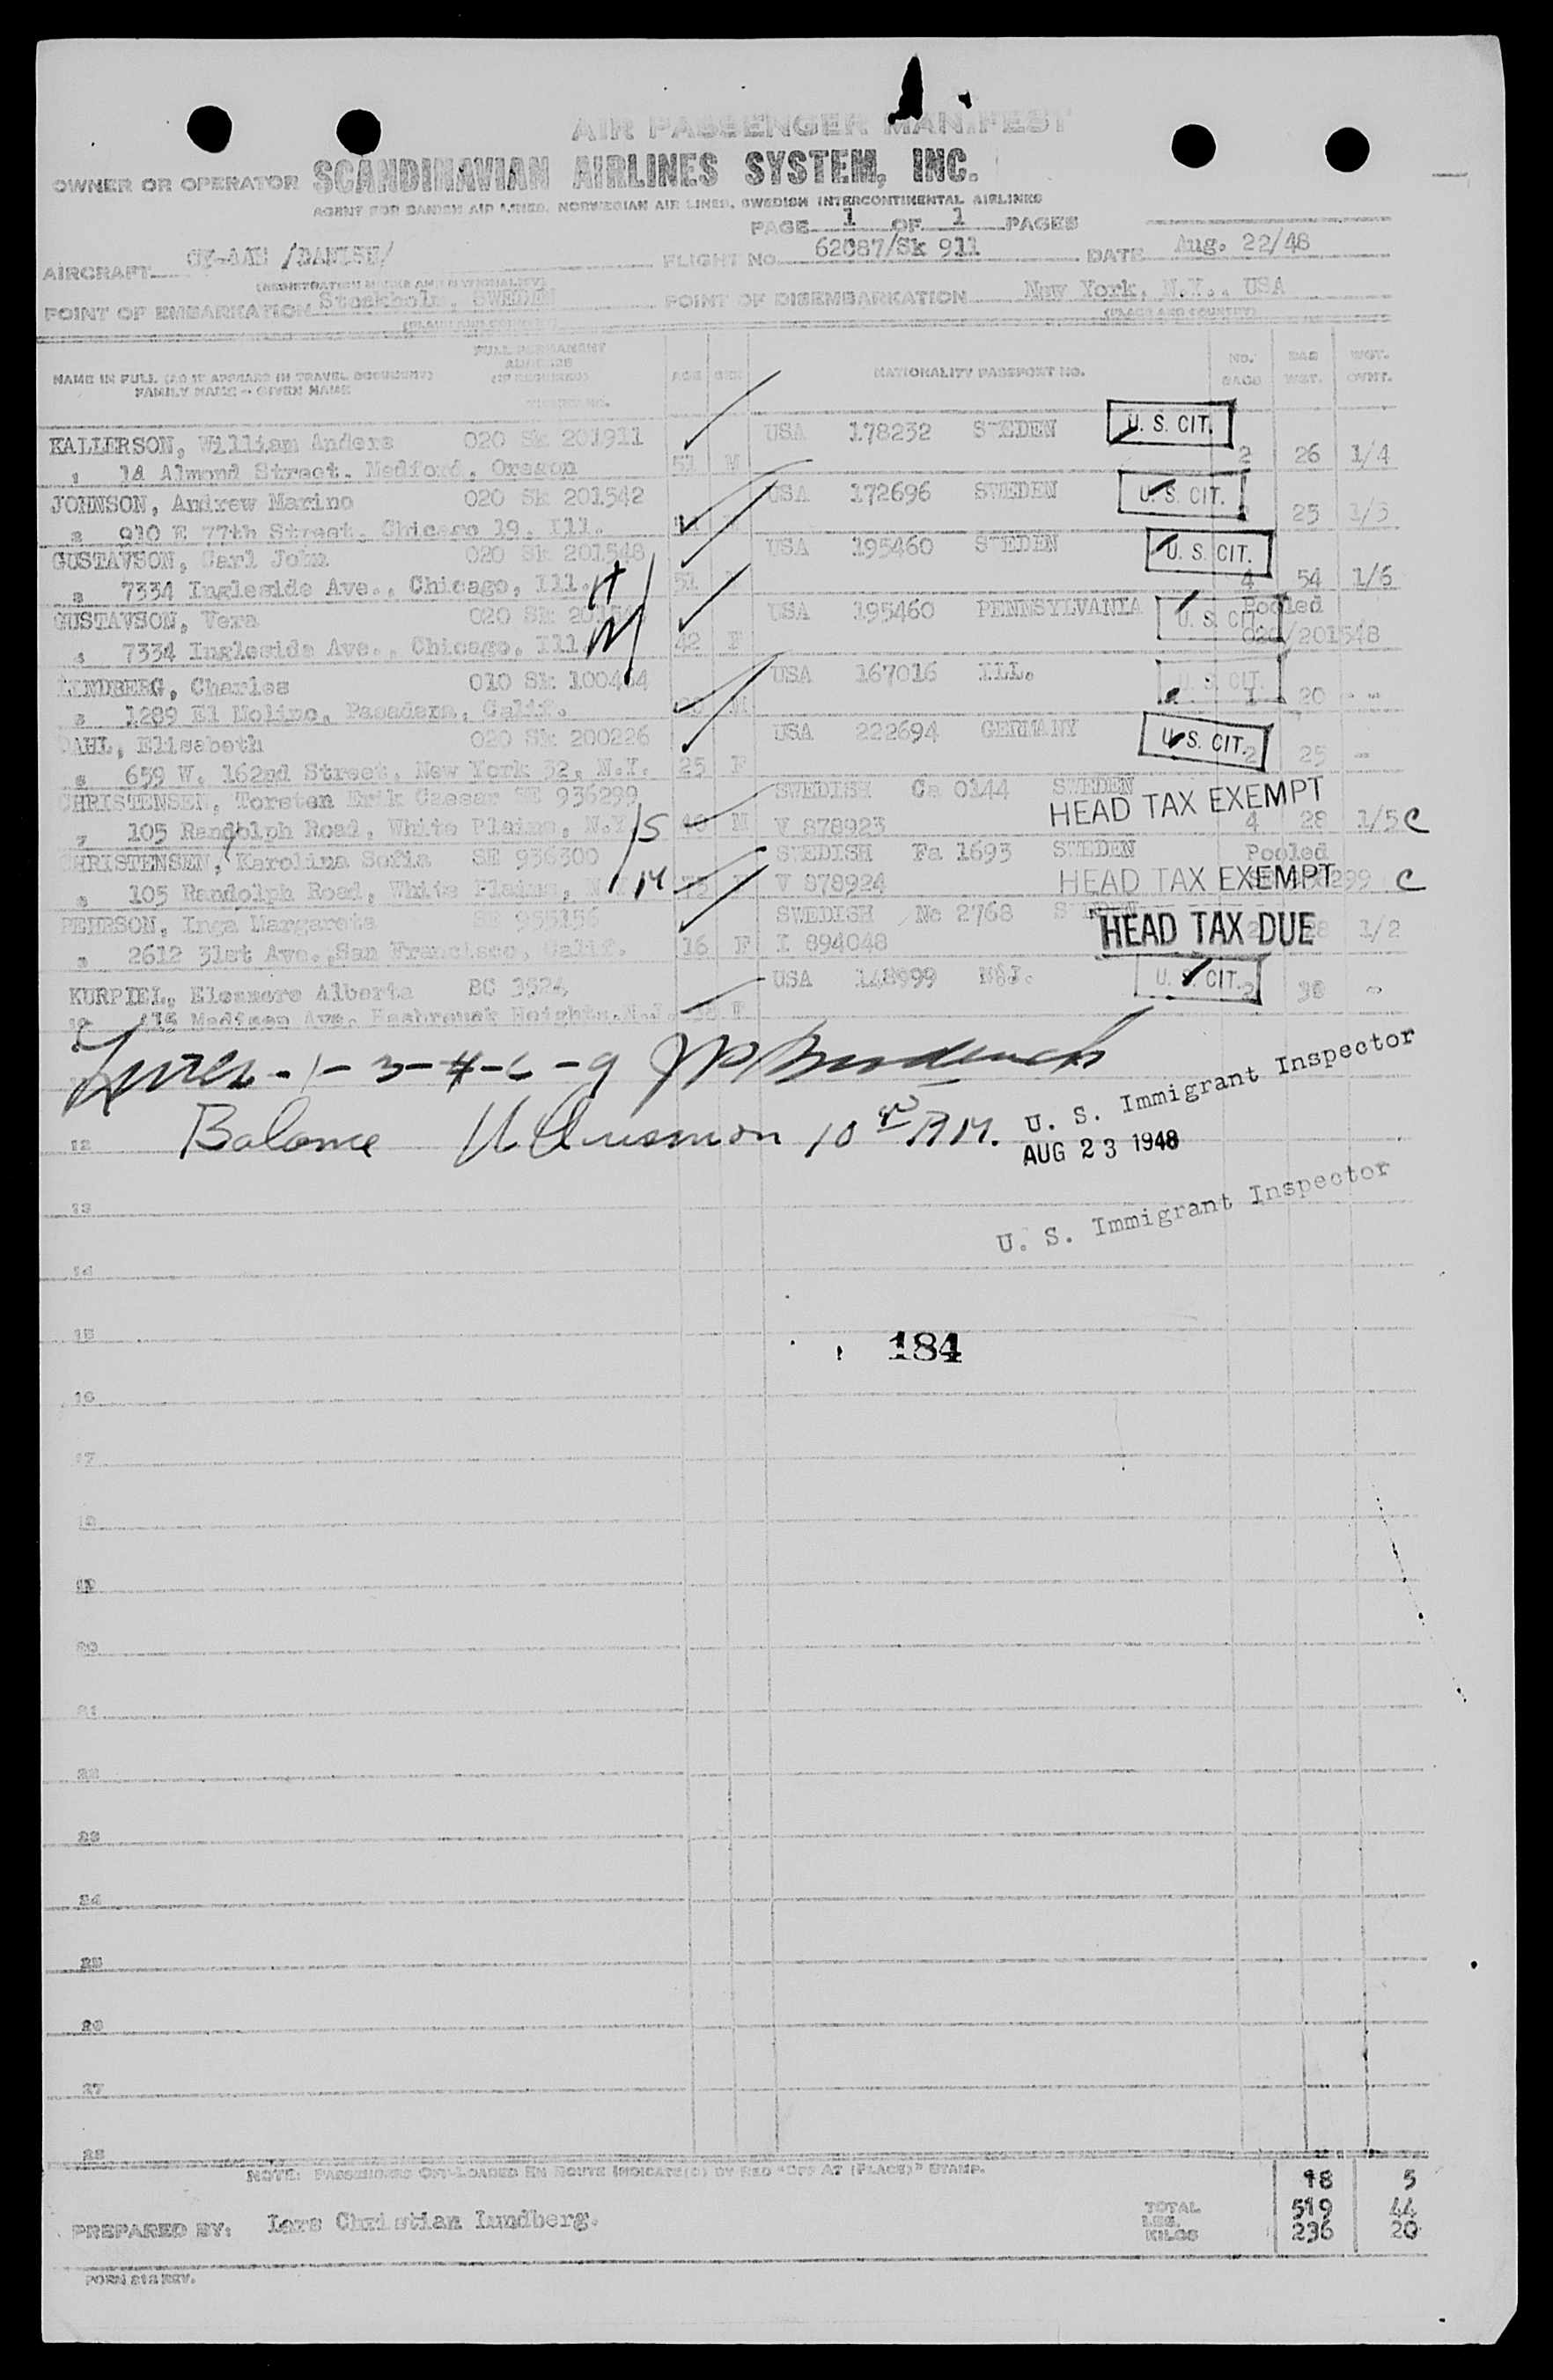 AIR PASSENGER MANIFEST
OWNER OR OPERATOR SCANDINAVIAN AIRLINES SYSTEM, INC.
AGENT FOR DANISH AIR LINES, NORWEGIAN AIR LINES, SWEDISH INTERCONTINENTAL AIRLINES
PAGE 1 OF 1 PAGES
AIRCRAFT /DANISH/ FLIGHT NO. 62C87/Sk 911 DATE Aug. 22/48
(REGISTRATION MARKS AND NATIONALITY)
POINT OF EMBARKATION Stockholm, SWEDEN POINT OF DISEMBARKATION New York, N.Y., USA
(PLACE AND COUNTRY) (PLACE AND COUNTRY)
NAME IN FULL (AS IT APPEARS IN TRAVEL DOCUMENT) FAMILY NAME - GIVEN NAME FULL PERMANENT ADDRESS (IF REQUIRED) AGE SEX NATIONALITY PASSPORT NO. NO. BAGS BAG WGT. WGT. OVWT.
KALLERSON, William Anders 020 Sk 201911 USA 178232 SWEDEN U. S. CIT.
14 Almond Street, Medford, Oregon 51 M 2 26 1/4
JOHNSON, Andrew Marino 020 Sk 201542 USA 172696 SWEDEN U. S. CIT.
910 E 77th Street, Chicago 19, Ill. 25 1/3
GUSTAVSON, Carl John 020 Sk 201548 USA 195460 SWEDEN U. S. CIT.
7334 Ingleside Ave., Chicago, Ill. H 51 4 54 1/6
GUSTAVSON, Vera 020 Sk USA 195460 PENNSYLVANIA U. S. CIT. Pooled
7334 Ingleside Ave., Chicago, Ill. W 42 F 020/201548
LINDBERG, Charles 010 Sk 100464 USA 167016 ILL. U. S. CIT.
1289 El Molino, Pasadena, Calif. M 1 20 - -
DAHL, Elisabeth 020 Sk 200226 USA 222694 GERMANY U. S. CIT.
659 W. 162nd Street, New York 32, N.Y. 25 F 2 25 -
CHRISTENSEN, Torsten Erik Caesar SE 936299 SWEDISH Ca 0144 SWEDEN HEAD TAX EXEMPT
105 Randolph Road, White Plains, N.Y. S 40 M V 878923 4 28 1/5 C
CHRISTENSEN, Karolina Sofia SE 936300 SWEDISH Fa 1693 SWEDEN Pooled
105 Randolph Road, White Plains, N.Y. M 75 V 878924 HEAD TAX EXEMPT 299 C
PEHRSON, Inga Margareta SE 955156 SWEDISH No 2768 SWEDEN HEAD TAX DUE
2612 31st Ave., San Francisco, Calif. 16 F I 894048 2 28 1/2
KURPIEL, Eleanore Alberta BG 3524 USA 148999 N.J. U. S. CIT.
10 415 Madison Ave. Hasbrouck Heights, N.J. F 2 38 -
Lines - 1 - 3 - 4 - 6 - 9
U. S. Immigrant Inspector
12 Balance 10 AM.
AUG 23 1948
13
U. S. Immigrant Inspector
14
15
184
16
17
18
19
20
21
22
23
24
25
26
27
28
NOTE: PASSENGERS OFF-LOADED EN ROUTE INDICATE(D) BY RED "OFF AT (PLACE)" STAMP.
18 5
TOTAL LBS. 519 44
KILOS 236 20
PREPARED BY: Lars Christian Lundberg.
FORM 212 REV.